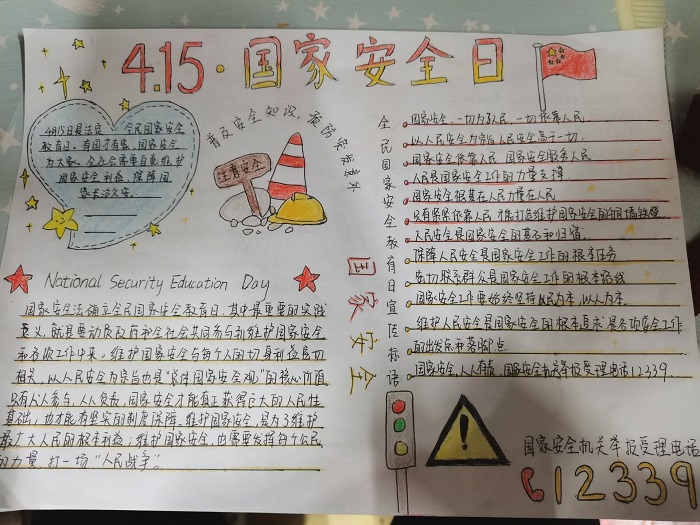 4.15·国家安全日
4月15日是法定 全民国家安全
教育日。有国才有家，国家安全
为大家。全社会需要自觉维护
国家安全利益，保障国
家长治久安。
普及安全知识，预防灾害意外
注意安全
National Security Education Day
国家安全法确立全民国家安全教育日，其中最重要的实践
意义，就是要动员政府和全社会共同参与到维护国家安全
和各次工作中来。维护国家安全与每个人的切身利益息息
相关，以人民安全为宗旨也是"总体国家安全观"的核心价值
只有人人参与、人人负责，国家安全才能真正获得巨大的人民性
基础，也才能有坚实的制度保障。维护国家安全，是为了维护
最广大人民的根本利益；维护国家安全，也需要发挥每个公民
的力量，打一场"人民战争"。
国家安全
全民国家安全教育日宣传标语
国家安全，一切为了人民，一切依靠人民
以人民安全为宗旨，人民安全高于一切。
国家安全依靠人民，国家安全服务人民
人民是国家安全工作的力量支撑
国家安全根基在人民力量在人民
只有紧紧依靠人民，才能打造维护国家安全的铜墙铁壁
人民安全是国家安全的基石和归宿。
保障人民安全是国家安全工作的根本任务
密切联系群众是国家安全工作的根本路线
国家安全工作要始终坚持以民为本，以人为本
维护人民安全是国家安全的根本要求，是各项安全工作
的出发点和落脚点
国家安全，人人有责，国家安全机关举报受理电话12339
国家安全机关举报受理电话
12339